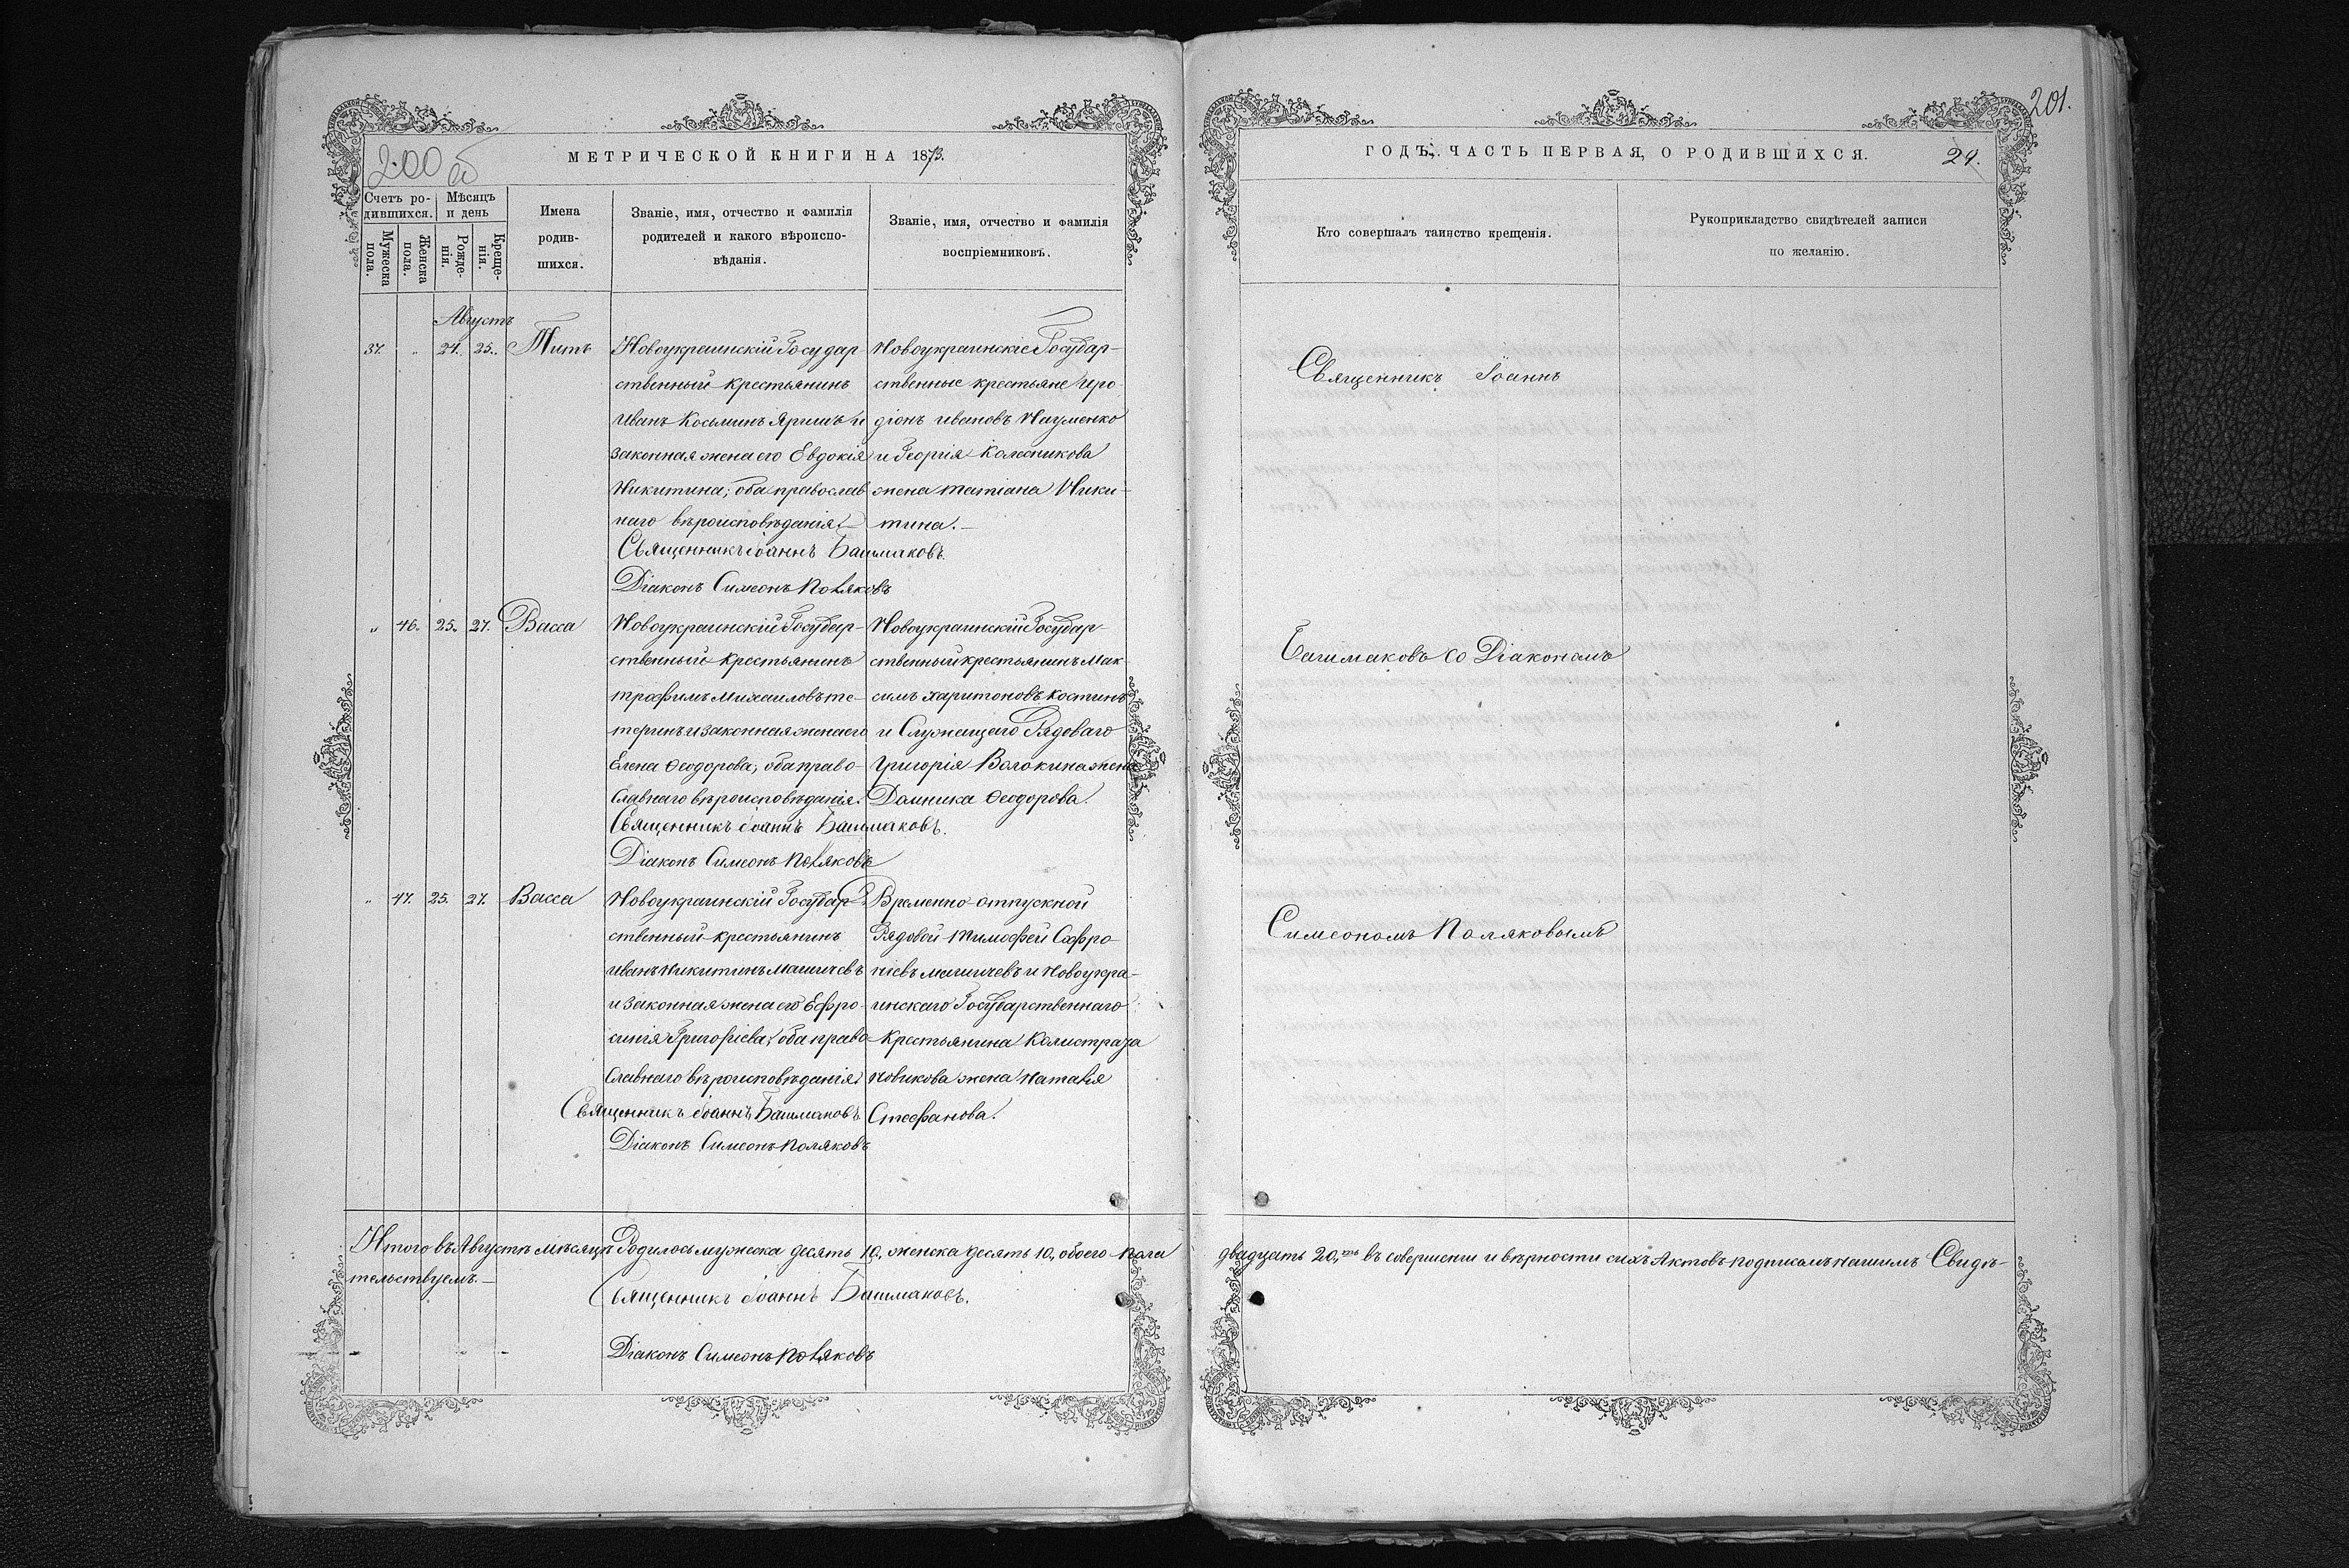 200 об
МЕТРИЧЕСКОЙ КНИГИ НА 1873.
Счетъ ро-
дившихся.
Мѣсяцъ
и день
Мужеска
пола.
Женска
пола.
Рожде-
нія.
Креще-
нія.
Имена
родив-
шихся.
Званіе, имя, отчество и фамилія
родителей и какого вѣроиспо-
вѣданія.
Званіе, имя, отчество и фамилія
воспріемниковъ.
Августъ
37. „ 24. 25. Титъ
Новоукраинскій Государ-
ственный крестьянинъ
Иванъ Косьминъ Яришъ и
законная жена его Евдокія
Никитина; оба православ
наго вѣроисповѣданія.
Священникъ Іоаннъ Башмаковъ.
Діаконъ Симеонъ Поляковъ
Новоукраинскіе Государ-
ственные крестьяне Иро-
діонъ Ивановъ Науменко
и Георгія Колесникова
жена Татіана Ники-
тина.
„ 46. 25. 27. Васса
Новоукраинскій Государ-
ственный крестьянинъ
Трофимъ Михаиловъ Те-
теринъ и законная жена его
Елена Ѳеодорова, оба право-
славнаго вѣроисповѣданія.
Священникъ Іоаннъ Башмаковъ.
Діаконъ Симеонъ Поляковъ
Новоукраинскій Государ-
ственный крестьянинъ Мак
симъ Харитоновъ Костинъ
и Служащаго Рядоваго
Григорія Волокина жена
Домника Ѳеодорова.
„ 47. 25. 27. Васса
Новоукраинскій Государ-
ственный крестьянинъ
Иванъ Никитинъ Машичевъ
и законная жена его Ефро-
синія Григоріева, оба право
славнаго вѣроисповѣданія
Священникъ Іоаннъ Башмаковъ.
Діаконъ Симеонъ Поляковъ
Временно отпускной
Рядовой Тимофей Софро-
ніевъ Машичевъ и Новоукра-
инскаго Государственнаго
Крестьянина Калистрата
Новикова жена Наталія
Стефанова.
Итого въ Августѣ мѣсяцѣ Родилось мужеска десять 10, женска десять 10, обоего пола
тельствуемъ.
Священникъ Іоаннъ Башмаковъ.
Діаконъ Симеонъ Поляковъ
201.
ГОДЪ, ЧАСТЬ ПЕРВАЯ, О РОДИВШИХСЯ.
Кто совершалъ таинство крещенія.
Рукоприкладство свидѣтелей записи
по желанію.
Священникъ Іоаннъ
Башмаковъ со Діакономъ
Симеономъ Поляковымъ
двадцать 20, въ совершеніи и вѣрности сихъ Актовъ подписомъ нашимъ Свидѣ-